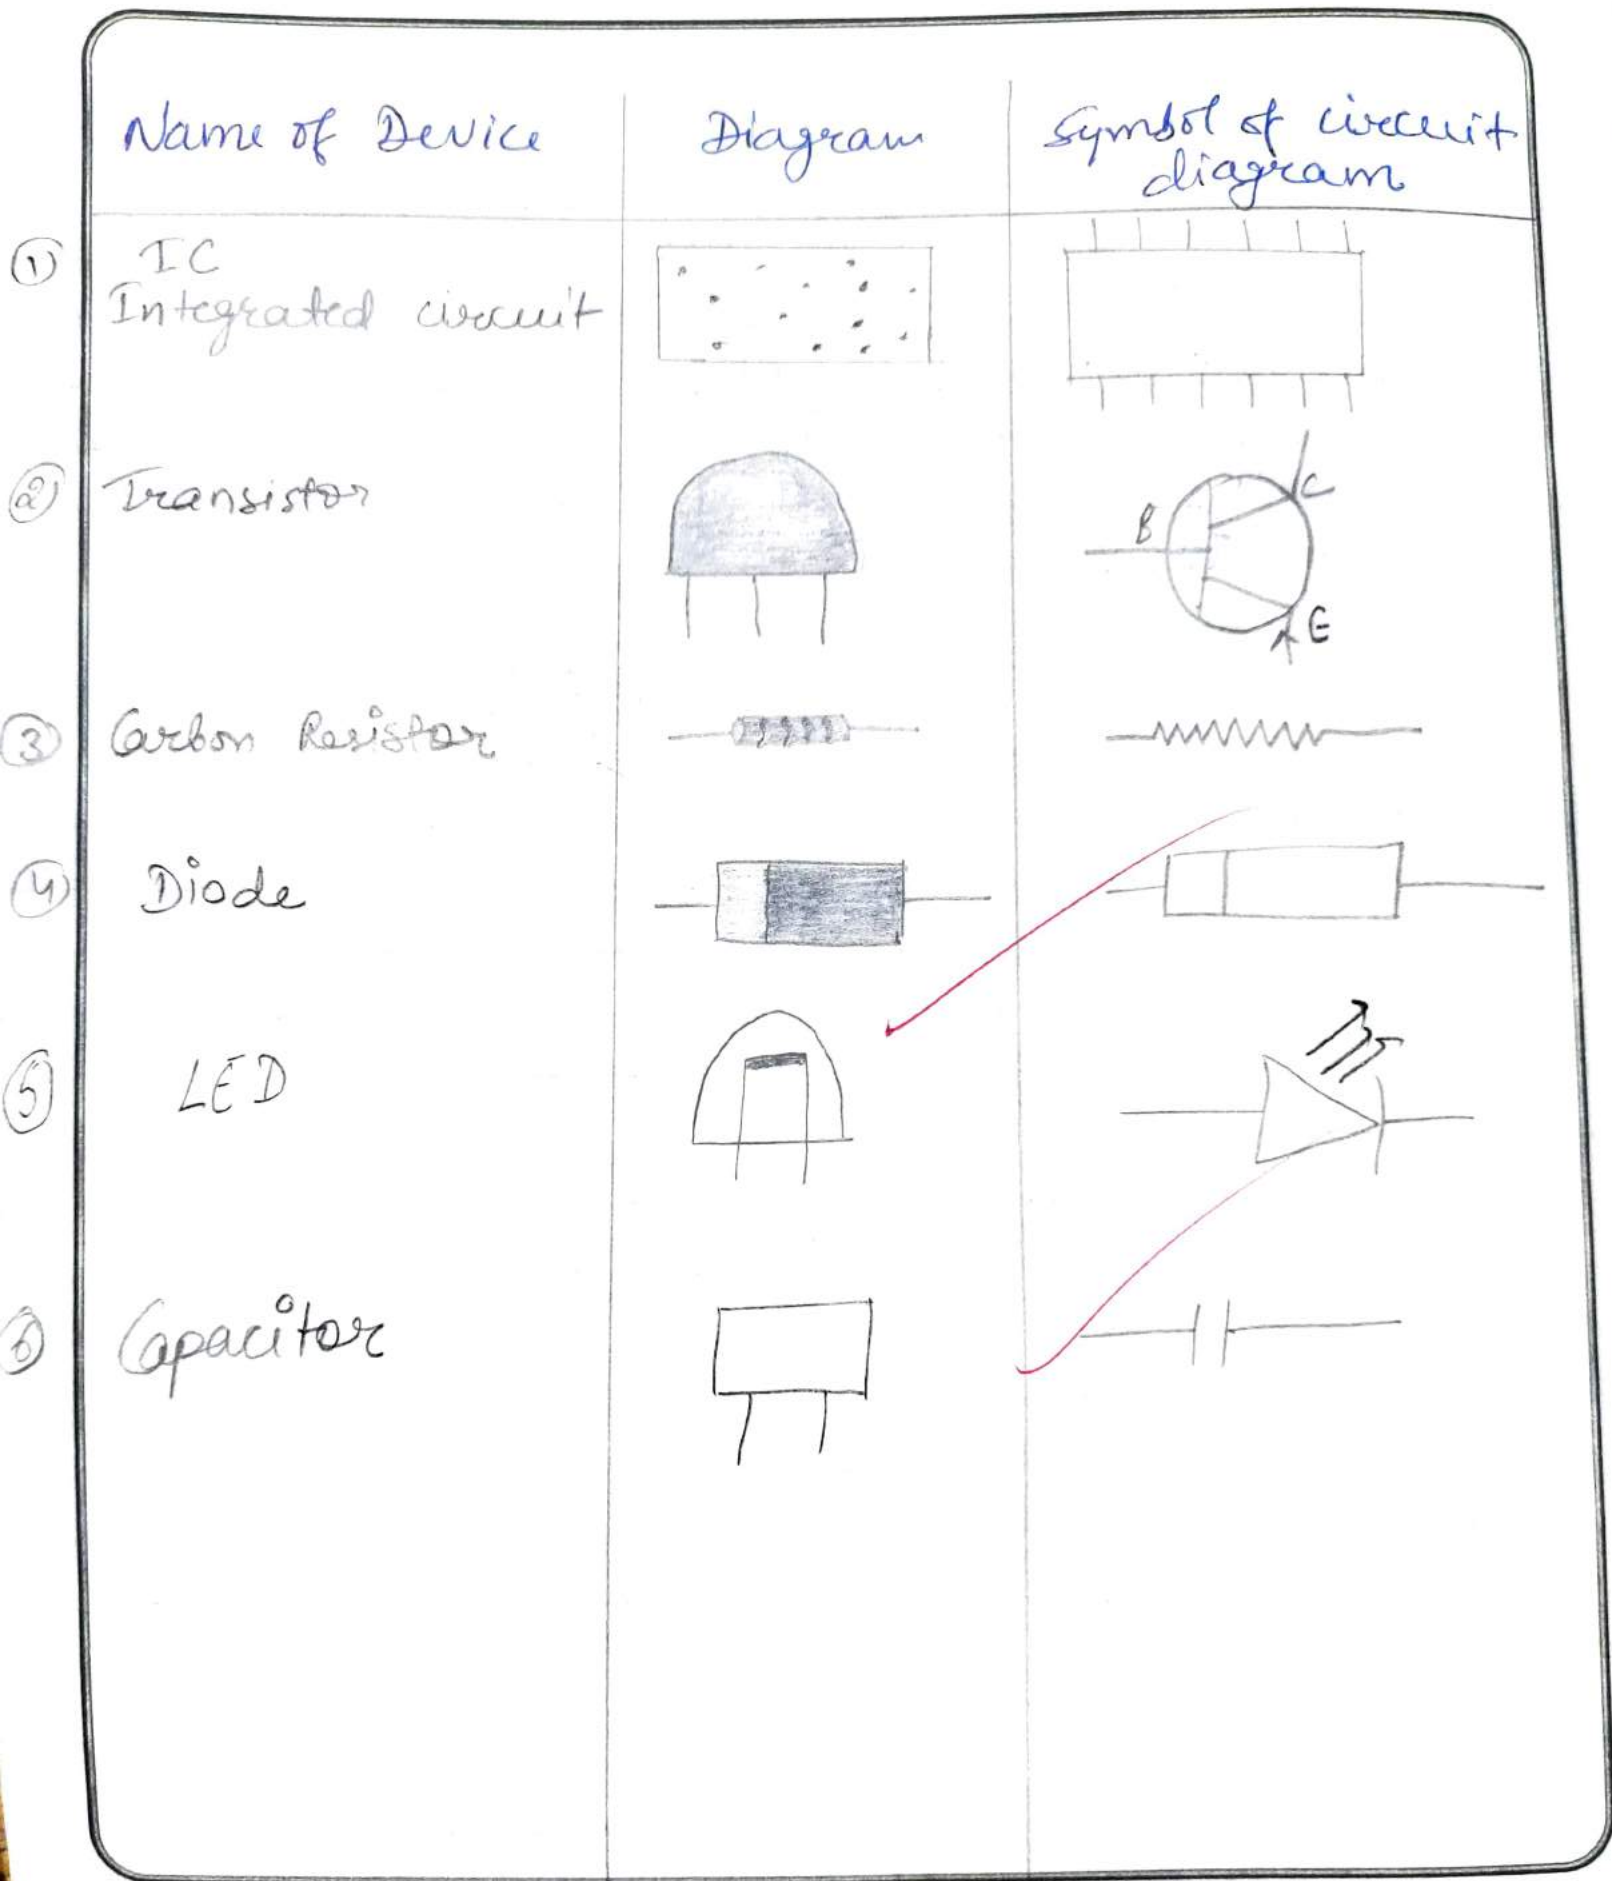 Name of Device Diagram Symbol of circuit
diagram
① IC
Integrated circuit
② Transistor B C E
③ Carbon Resistor
④ Diode
⑤ LED
⑥ Capacitor